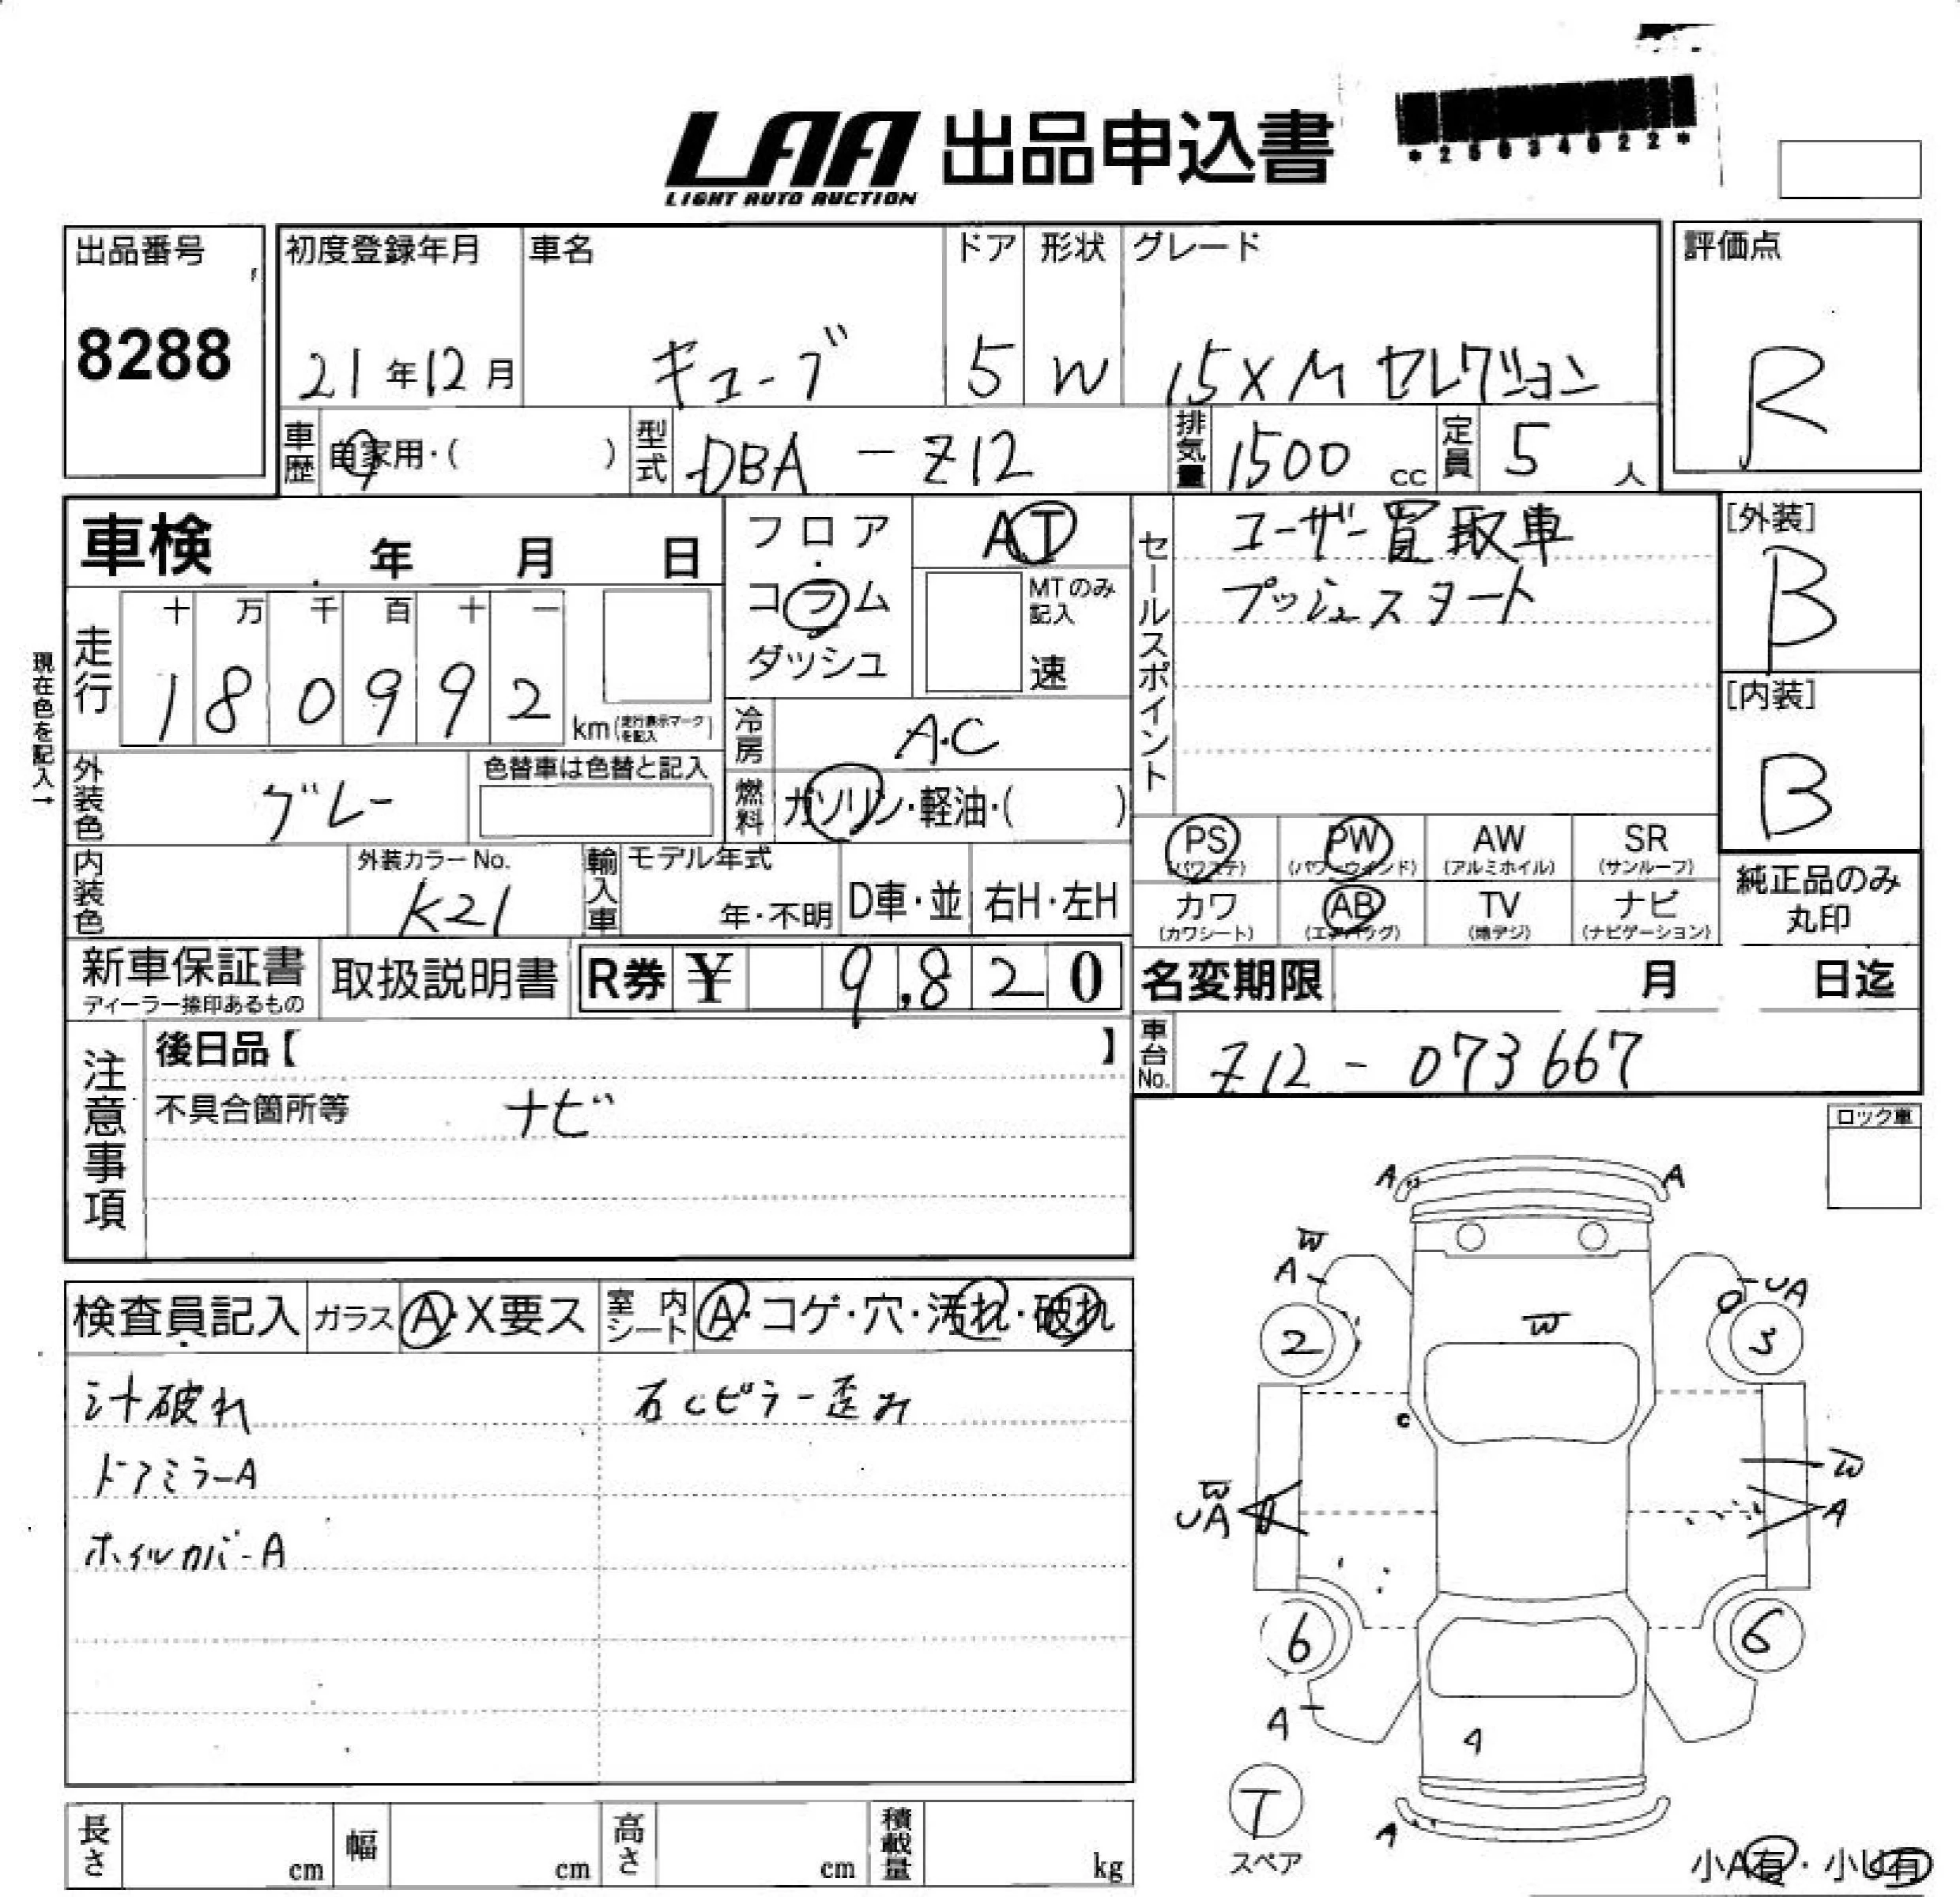 LAA 出品申込書
LIGHT AUTO AUCTION
*25034022*
出品番号
8288
初度登録年月
21年12月
車名
キューブ
ドア
5
形状
W
グレード
15X Mセレクション
評価点
R
車歴
自家用・( )
型式
DBA-Z12
排気量
1500 cc
定員
5 人
車検 年 月 日
フロア
・
コラム
ダッシュ
AT
MTのみ
記入
速
セールスポイント
ユーザー買取車
プッシュスタート
[外装]
B
[内装]
B
現在色を記入→
走行
十 万 千 百 十 一
1 8 0 9 9 2
km(走行表示マークを記入)
冷房
A.C
燃料
ガソリン・軽油・( )
外装色
グレー
色替車は色替と記入
内装色
外装カラーNo.
K21
輸入車
モデル年式
年・不明
D車・並
右H・左H
PS
(パワステ)
PW
(パワーウインド)
AW
(アルミホイル)
SR
(サンルーフ)
カワ
(カワシート)
AB
(エアバッグ)
TV
(地デジ)
ナビ
(ナビゲーション)
純正品のみ
丸印
新車保証書
ディーラー捺印あるもの
取扱説明書
R券 ¥ 9,820
名変期限 月 日迄
車台No.
Z12-073667
注意事項
後日品【 】
不具合箇所等 ナビ
ロック車
検査員記入
ガラス
A・X要ス
室内
シート
A・コゲ・穴・汚れ・破れ
シート破れ
右Cピラー歪み
ドアミラーA
ホイルカバーA
A A
W
A
UA
2
W
3
C
W
UA
W
A
6
6
A
A
T
スペア
A
小A有・小U有
長さ cm
幅 cm
高さ cm
積載量 kg